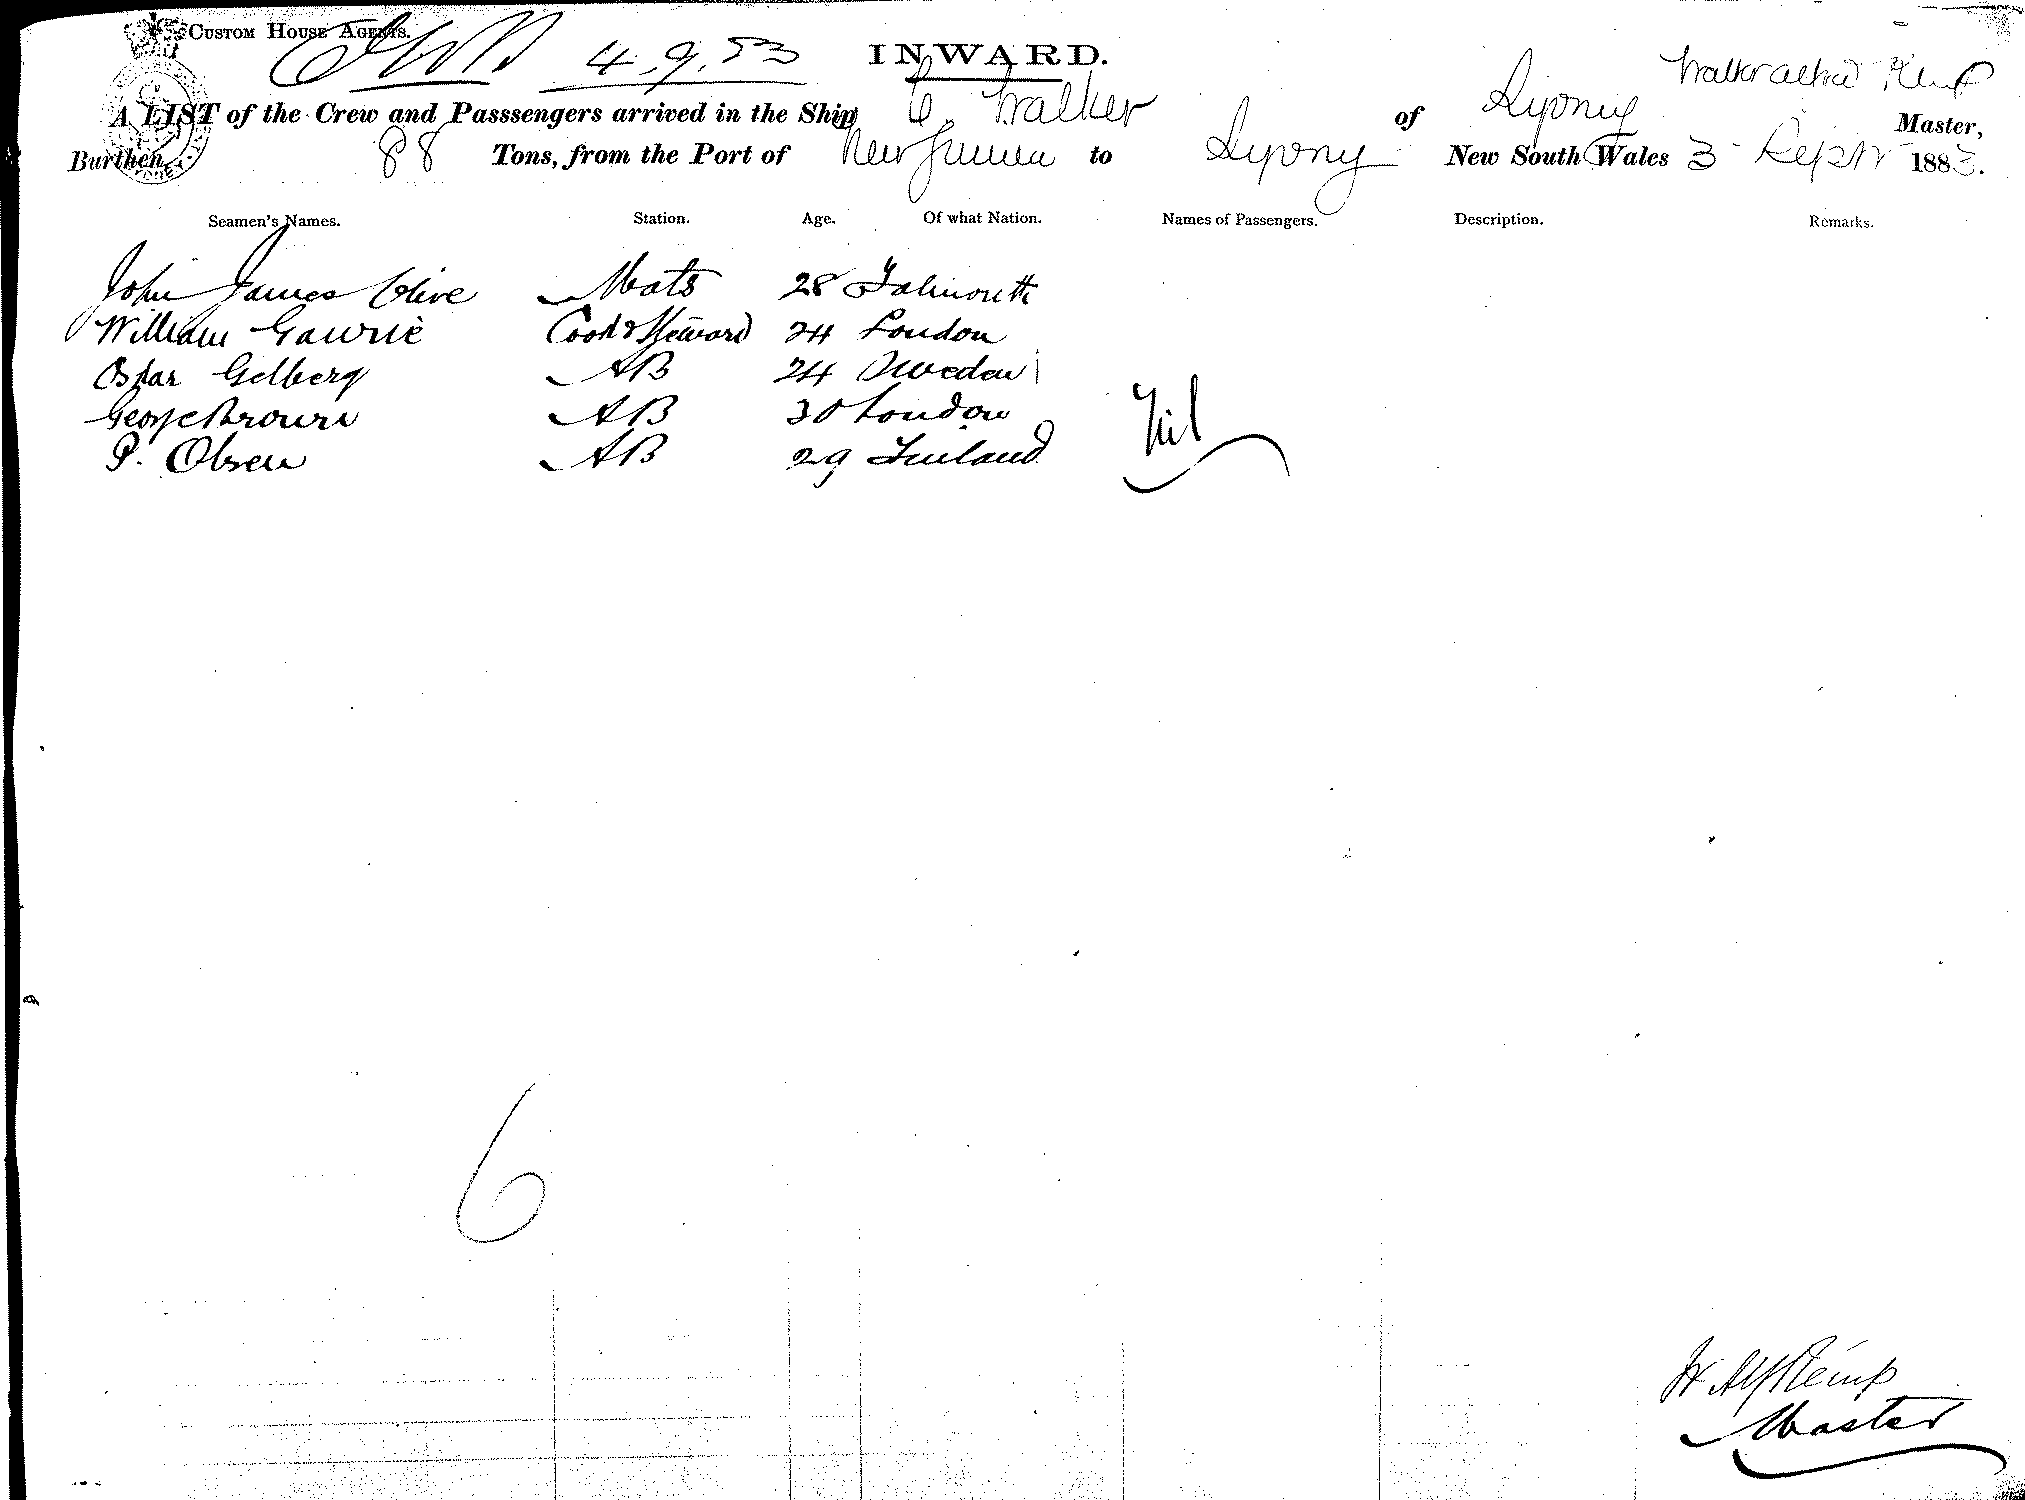 CUSTOM HOUSE AGENTS.
4.9.83 INWARD.
Walter Alfred Kemp
A LIST of the Crew and Passsengers arrived in the Ship C. Walker of Sydney Master,
Burthen 88 Tons, from the Port of New Guinea to Sydney New South Wales 3 Septr 1883.
Seamen's Names. Station. Age. Of what Nation. Names of Passengers. Description. Remarks.
John James Olive Mate 28 Falmouth
William Gawrie Cook & Steward 24 London
Oskar Gelberg AB 24 Sweden
George Brown AB 30 London
Nil
P. Olsen AB 29 Finland
6
W Alf Kemp
Master